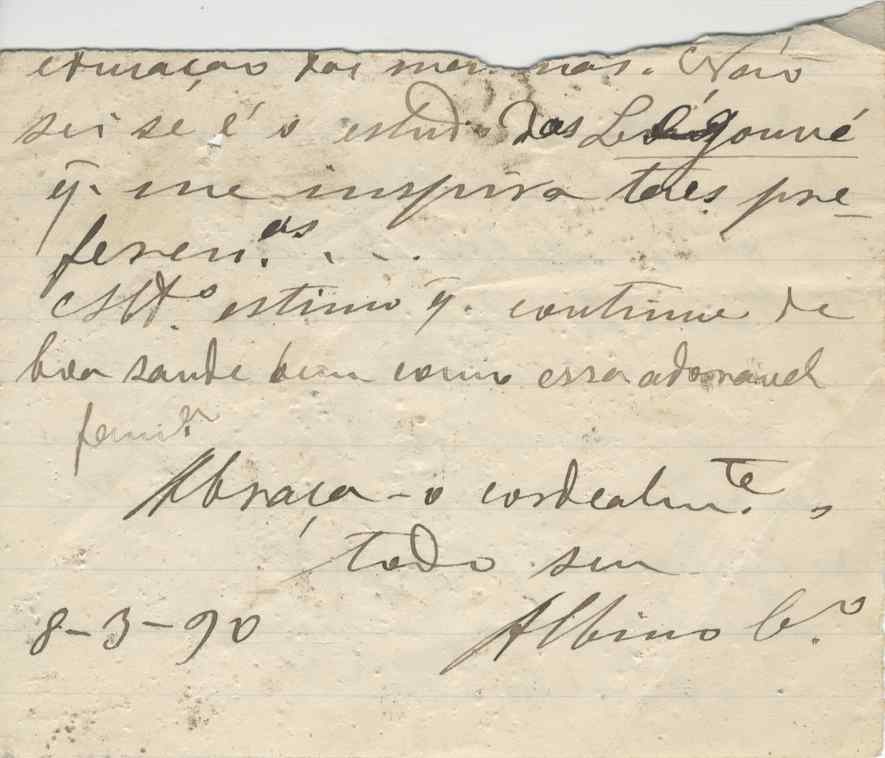 educação das meninas. Não
sei se é o estudo dos Légouvé
q̃. me inspira taes pre-
feren.as. . . .
M.to estimo q̃. continue de
boa saude bem como essa adoravel
fami.a
Abraça-o cordealm.te o
todo seu
8-3-90 Albino C.o